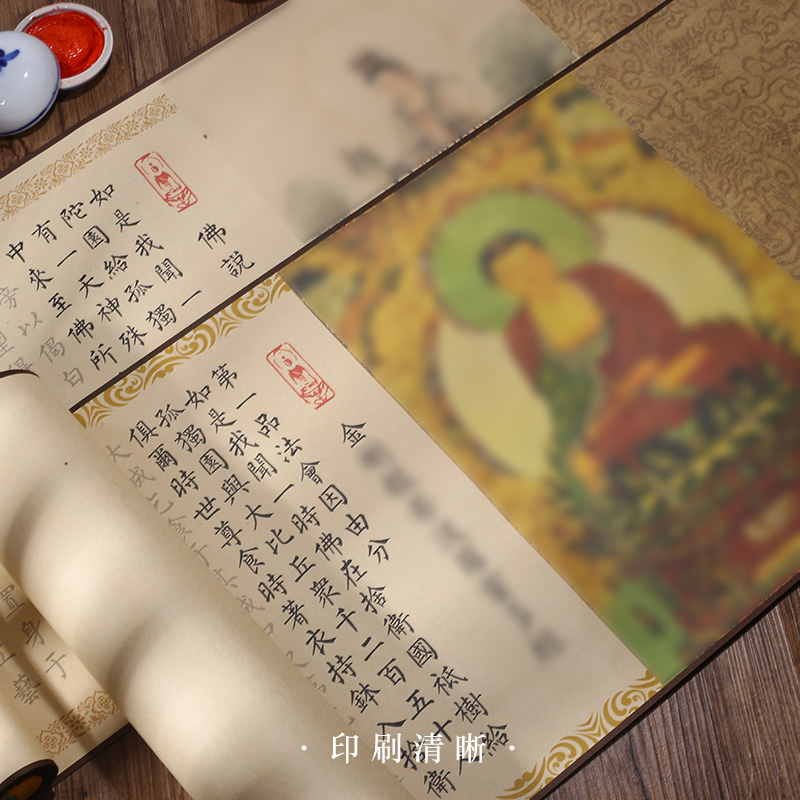 佛說
如是我聞一
陀園給孤獨
有一天神殊
中來至佛所
以偈白
金
第一品法會因由分
如是我聞一時佛在捨衛國祇樹給
孤獨園與大比丘眾千二百五十人
俱爾時世尊食時著衣持鉢入捨衛
大城乞食于其城
置身于
藝
· 印刷清晰 ·